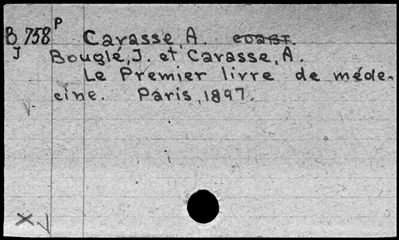 B 758 P Cavasse A.
J Bouglé, J. et Cavasse, A.
Le Premier livre de méde-
cine. Paris, 1897.
X